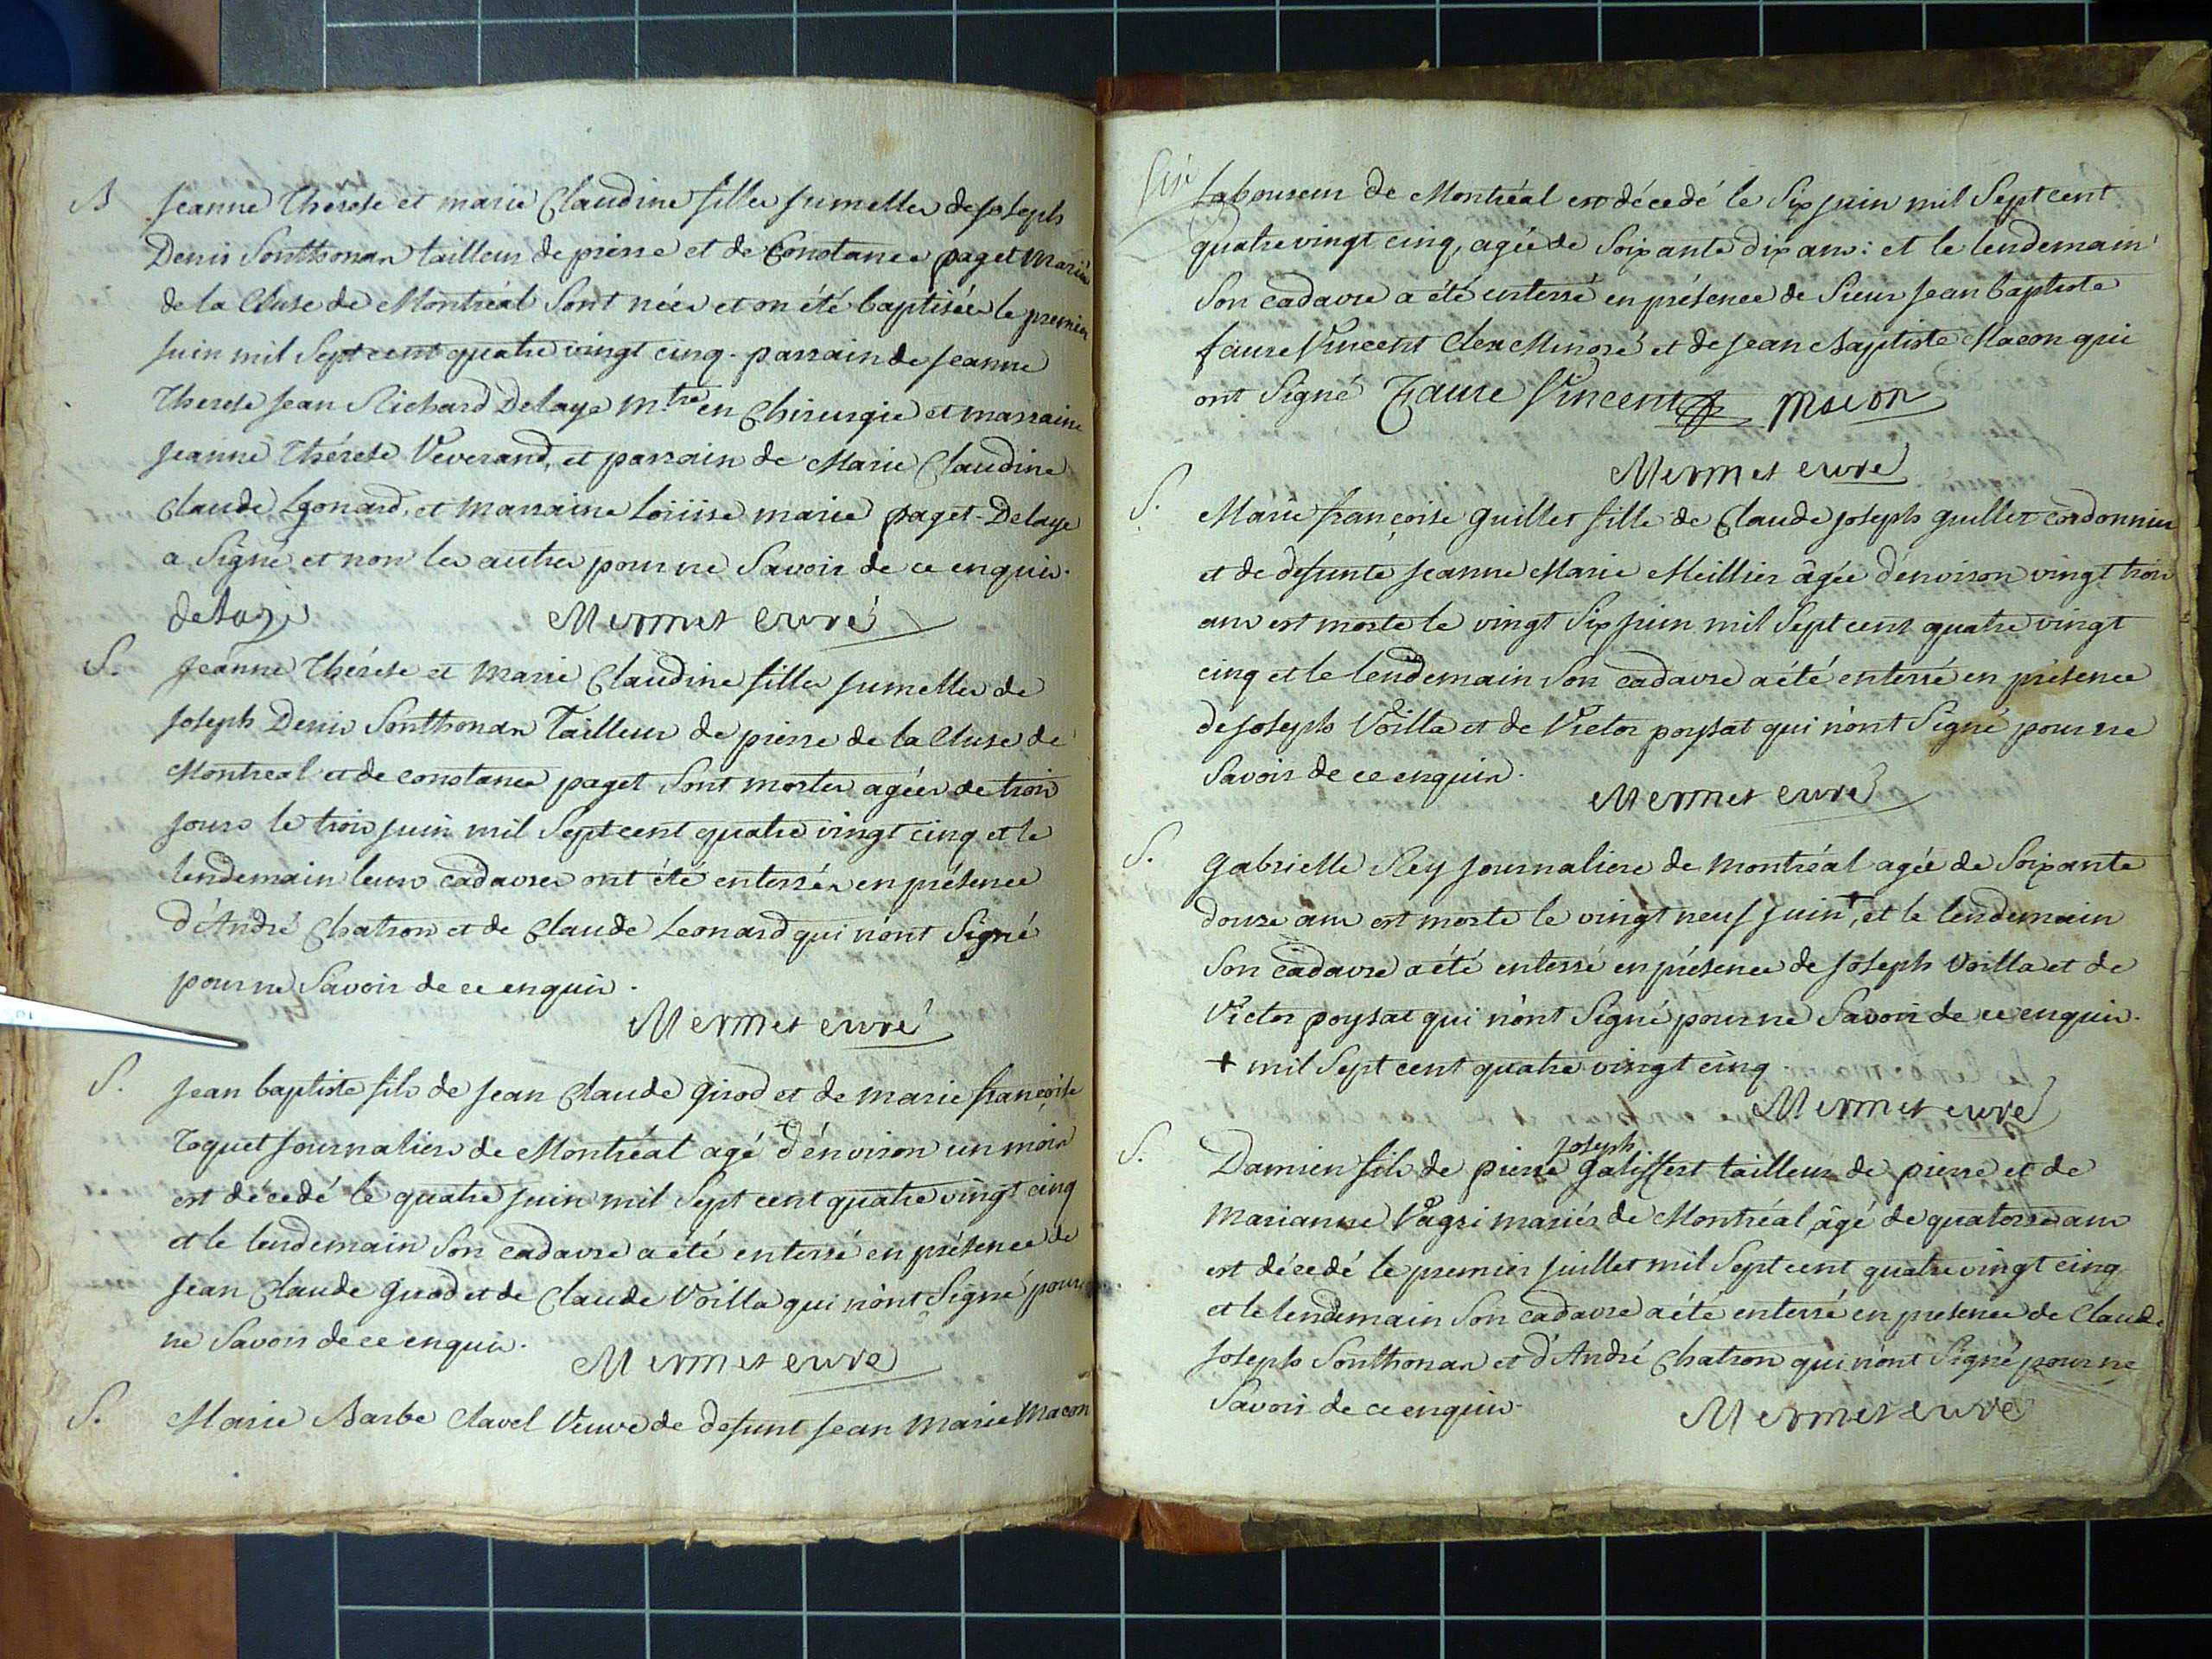 B Jeanne Thérèse et marie Claudine filles jumelles de joseph
Denis Sonthonax tailleur de pierre et de Constance paget mariés
de la Cluse de Montréal Sont nées et on été baptisées le premier
juin mil Sept cent quatre vingt cinq. parrain de jeanne
Therese jean Richard Delaye Mtre en Chirurgie et marraine
jeanne Thérèse Veverand, et parrain de Marie Claudine
Claude Leonard, et marraine Loüise marie paget. Delaye
a Signé et non les autres pour ne Savoir de ce enquis.
delaye Mermet curé
S. Jeanne Thérèse et Marie Claudine filles jumelles de
joseph Denis Sonthonax Tailleur de pierre de la Cluse de
Montreal et de constance paget Sont mortes agées de trois
jours le trois juin mil Sept cent quatre vingt cinq et le
lendemain leurs cadavres ont été enterrés en présence
d'André Chatron et de Claude Leonard qui n'ont Signé
pour ne Savoir de ce enquis.
Mermet curé
S. jean baptiste fils de jean Claude girod et de marie françoise
Toquet journaliers de Montréal agé d'environ un mois
est décedé le quatre juin mil Sept cent quatre vingt cinq
et le lendemain Son cadavre a été enterré en présence de
jean Claude girod et de Claude Voilla qui n'ont Signé pour
ne Savoir de ce enquis.
Mermet curé
S. Marie Barbe Clavel Veuve de defunt jean Marie Macon
Laboureur de Montréal est décedé le Six juin mil Sept cent
quatre vingt cinq, agée de Soixante dix ans: et le lendemain
Son cadavre a été enterré en présence de Sieur jean baptiste
faure Vincent Clerc Minoré et de jean Baptiste Macon qui
ont Signé Faure Vincent Macon
Mermet curé
S. Marie françoise guillet fille de Claude joseph guillet cordonnier
et de defunte jeanne Marie Meillier âgée d'environ vingt trois
ans est morte le vingt Six juin mil Sept cent quatre vingt
cinq et le lendemain Son cadavre a été enterré en présence
de joseph Voilla et de Victor poysat qui n'ont Signé pour ne
Savoir de ce enquis.
Mermet curé
S. Gabrielle Rey journaliere de Montréal agée de Soixante
douze ans est morte le vingt neuf juin+, et le lendemain
Son cadavre a été enterré en présence de joseph Voilla et de
Victor poysat qui n'ont Signé pour ne Savoir de ce enquis.
+ mil Sept cent quatre vingt cinq.
Mermet curé
joseph
S. Damien fils de pierre galiffert tailleur de pierre et de
Marianne Vagri mariés de Montréal, âgé de quatorze ans
est décedé le premier juillet mil Sept cent quatre vingt cinq
et le lendemain Son cadavre a été enterré en presence de Claude
joseph Sonthonax et d'André Chatron qui n'ont Signé pour ne
Savoir de ce enquis.
Mermet curé